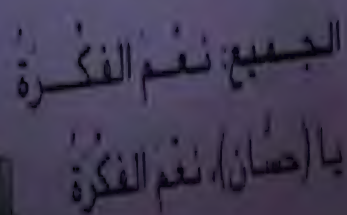 الجميع: نعْم الفكْرةُ
يا (حسَّان)، نعْم الفكْرةُ